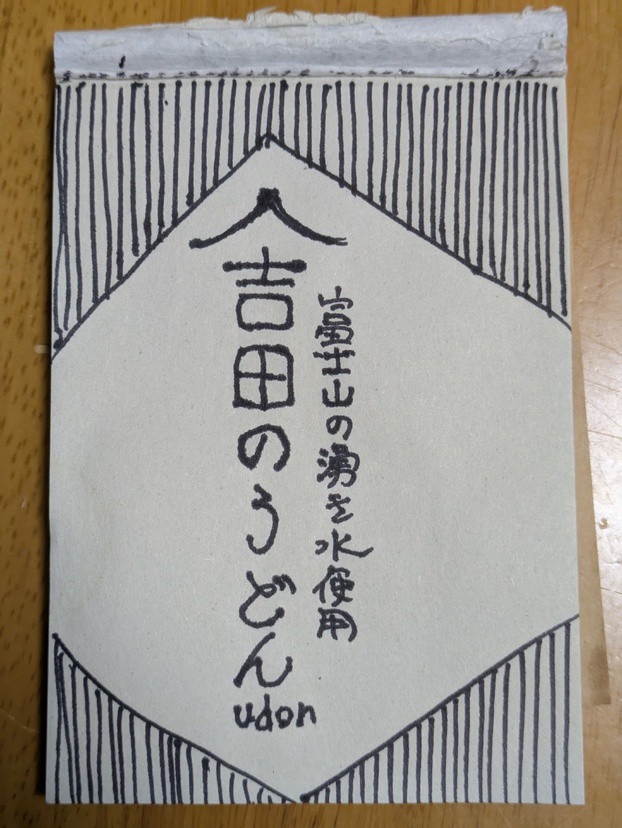 富士山の湧き水使用
吉田のうどん
udon